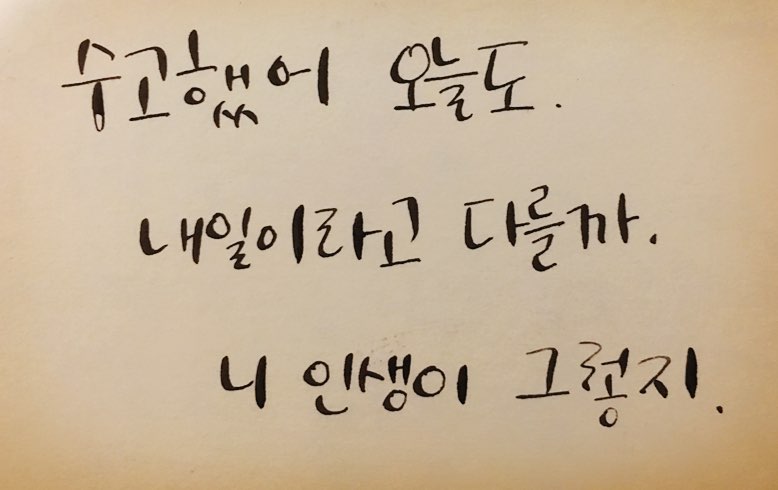 수고했어 오늘도.
내일이라고 다를까.
니 인생이 그렇지.